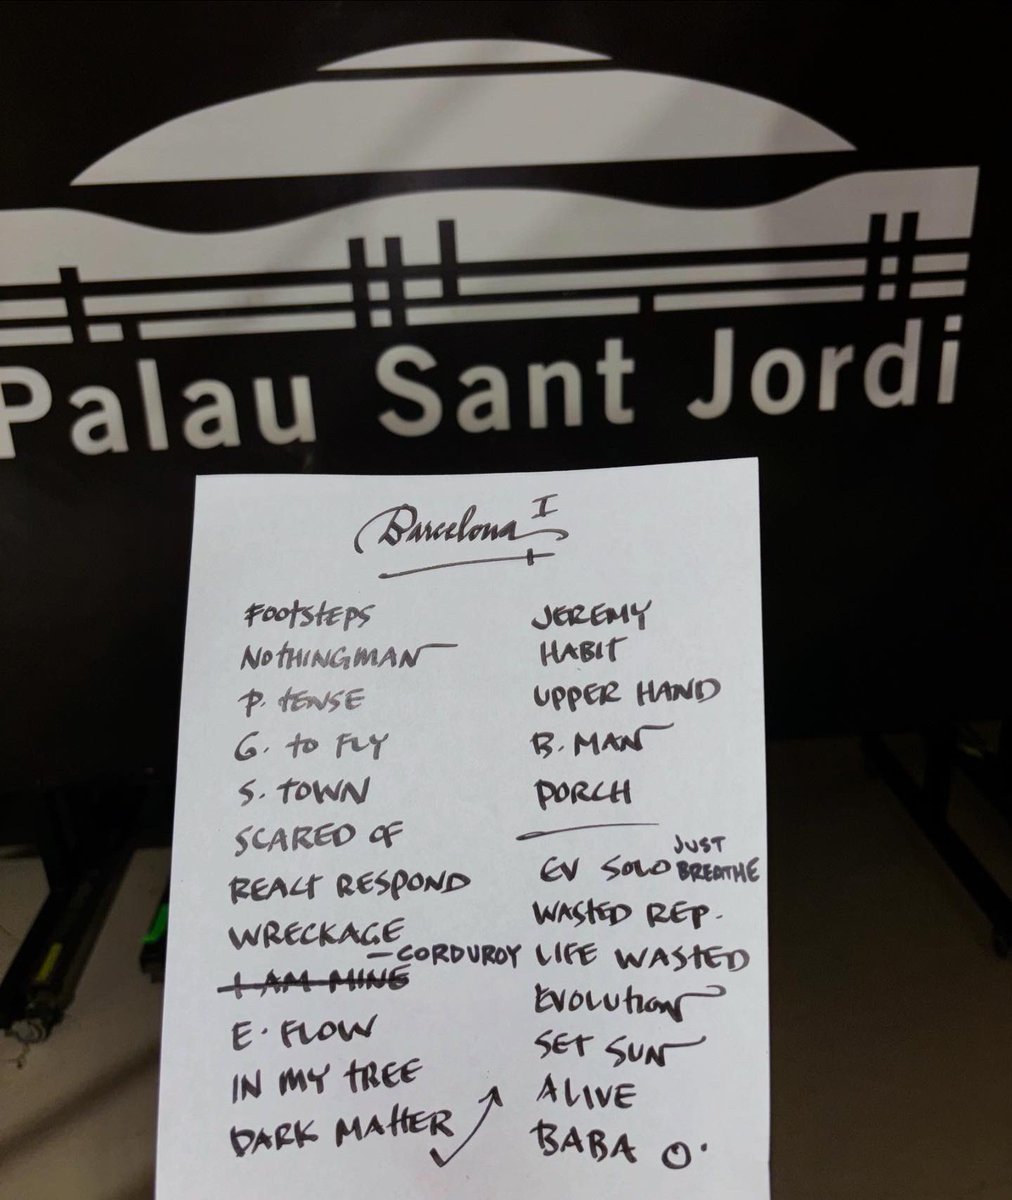 Palau Sant Jordi
Barcelona I
FOOTSTEPS
NOTHINGMAN
P. TENSE
G. TO FLY
S. TOWN
SCARED OF
REACT RESPOND
WRECKAGE
I AM MINE – CORDUROY
E. FLOW
IN MY TREE
DARK MATTER
JEREMY
HABIT
UPPER HAND
B. MAN
PORCH
EV SOLO JUST BREATHE
WASTED REP.
LIFE WASTED
EVOLUTION
SET SUN
ALIVE
BABA O.